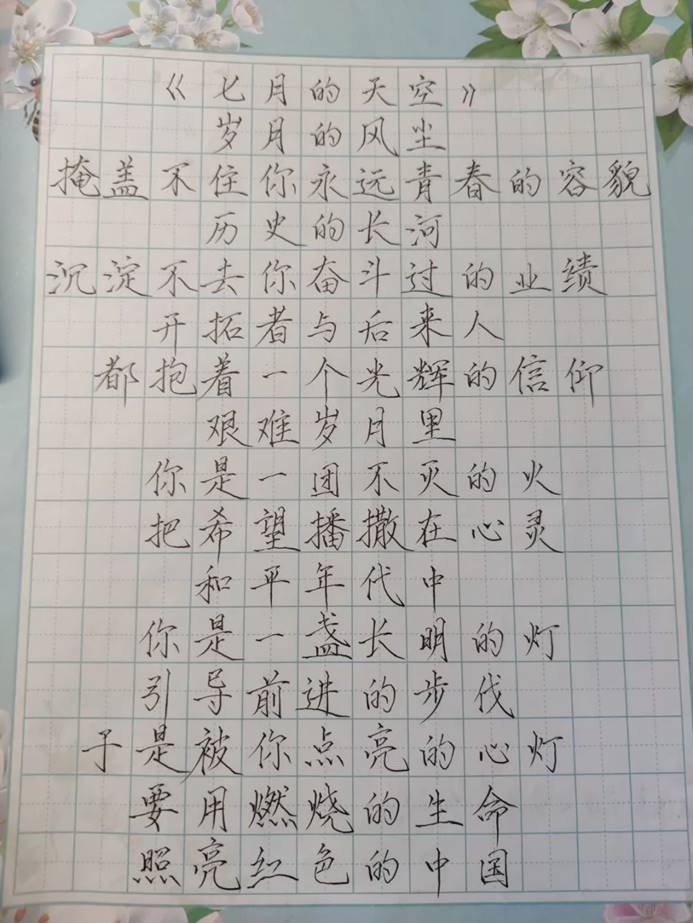 《七月的天空》
岁月的风尘
掩盖不住你永远青春的容貌
历史的长河
沉淀不去你奋斗过的业绩
开拓者与后来人
都抱着一个光辉的信仰
艰难岁月里
你是一团不灭的火
把希望播撒在心灵
和平年代中
你是一盏长明的灯
引导前进的步伐
于是被你点亮的心灯
要用燃烧的生命
照亮红色的中国